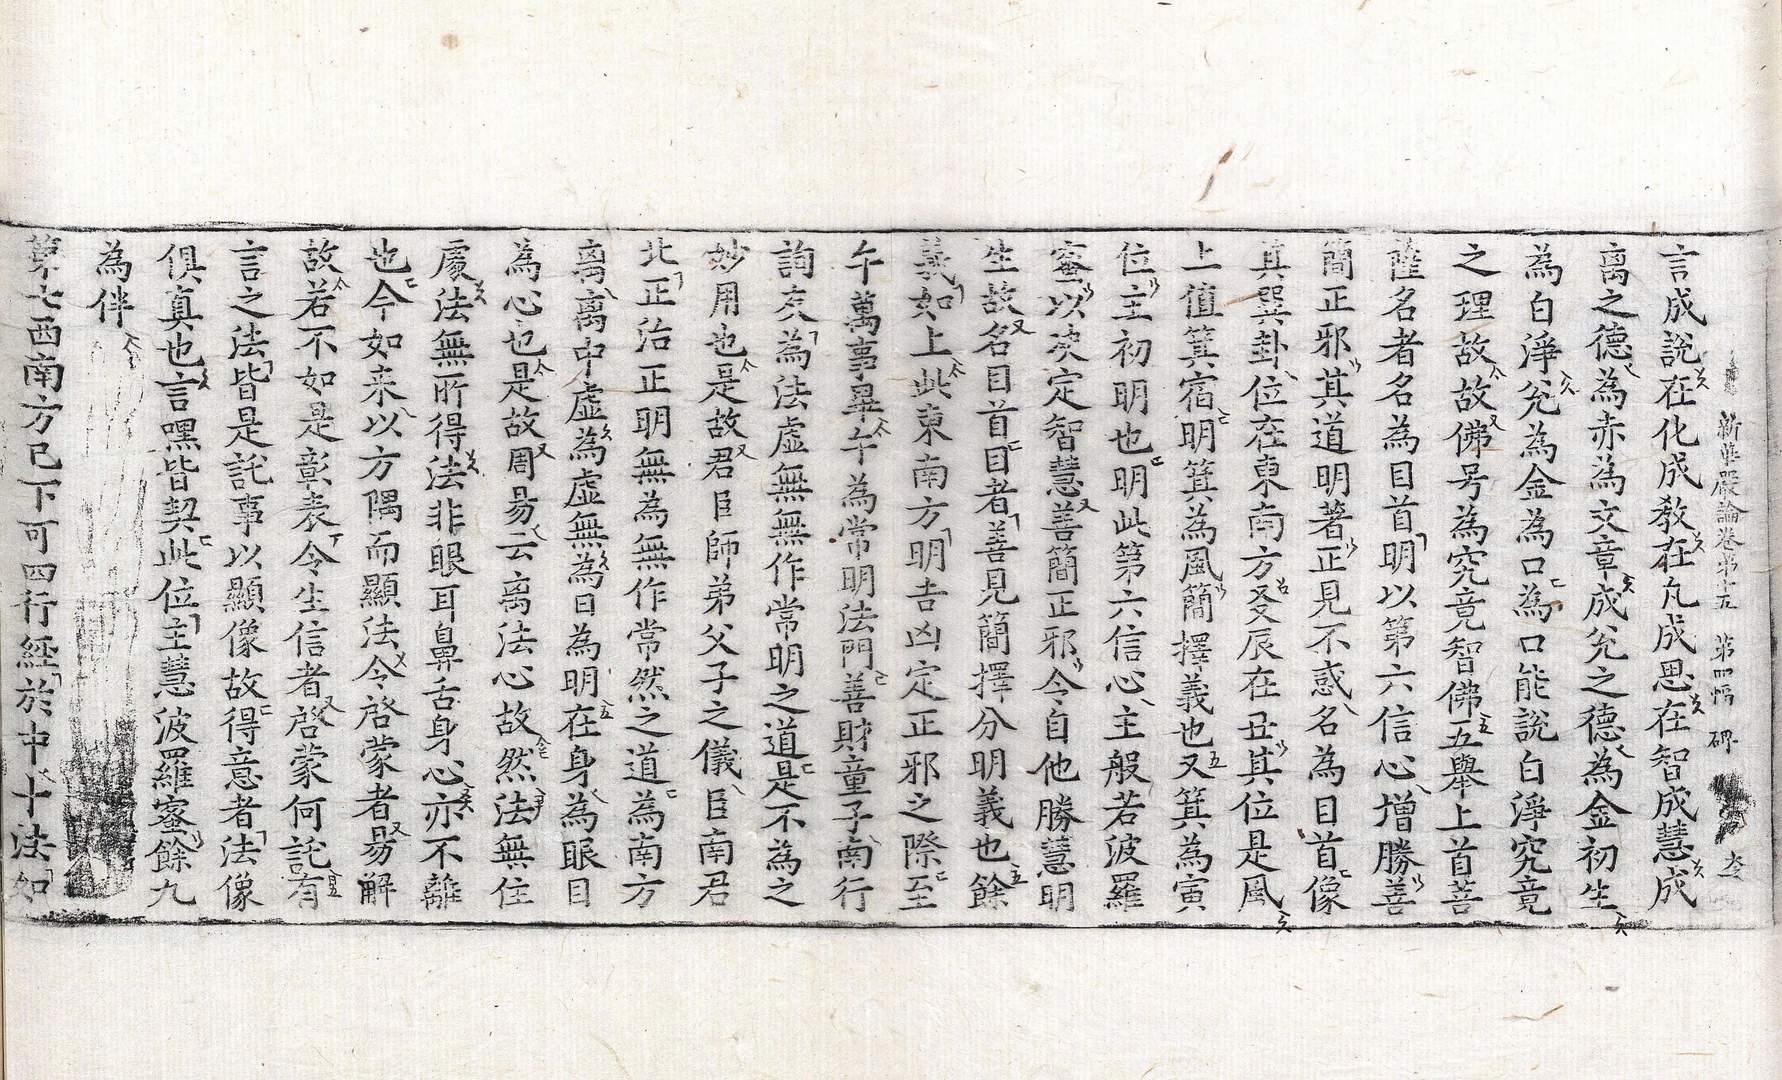 新華嚴論卷第十五 第四幅 碑
言成說在化成教在九成思在智成慧成
离之德為赤為文章成兊之德為金初生
為白淨兊為金為口為口能說白淨究竟
之理故故佛号為究竟智佛五舉上首菩
薩名者名為目首明以第六信心增勝善
簡正邪其道明著正見不惑名為目首像
其巽卦位在東南方叉辰在丑其位是風
上值箕宿明箕為風簡擇義也又箕為寅
位主初明也明此第六信心主般若波羅
蜜以决定智慧善簡正邪令自他勝慧明
生故名目首目者善見簡擇分明義也餘
義如上此東南方明吉凶定正邪之際至
午萬事畢午為常明法門善財童子南行
詢友為法虛無無作常明之道是不為之
妙用也是故君臣師弟父子之儀臣南君
北正治正明無為無作常然之道為南方
离离中虛為虛無為日為明在身為眼目
為心也是故周易云离法心故然法無住
處法無所得法非眼耳鼻舌身心亦不離
也今如来以方隅而顯法令啓蒙者易解
故若不如是彰表令生信者啓蒙何託有
言之法皆是託事以顯像故得意者法像
俱真也言嘿皆契此位主慧波羅蜜餘九
為伴
第七西南方已下可四行經於中十法如